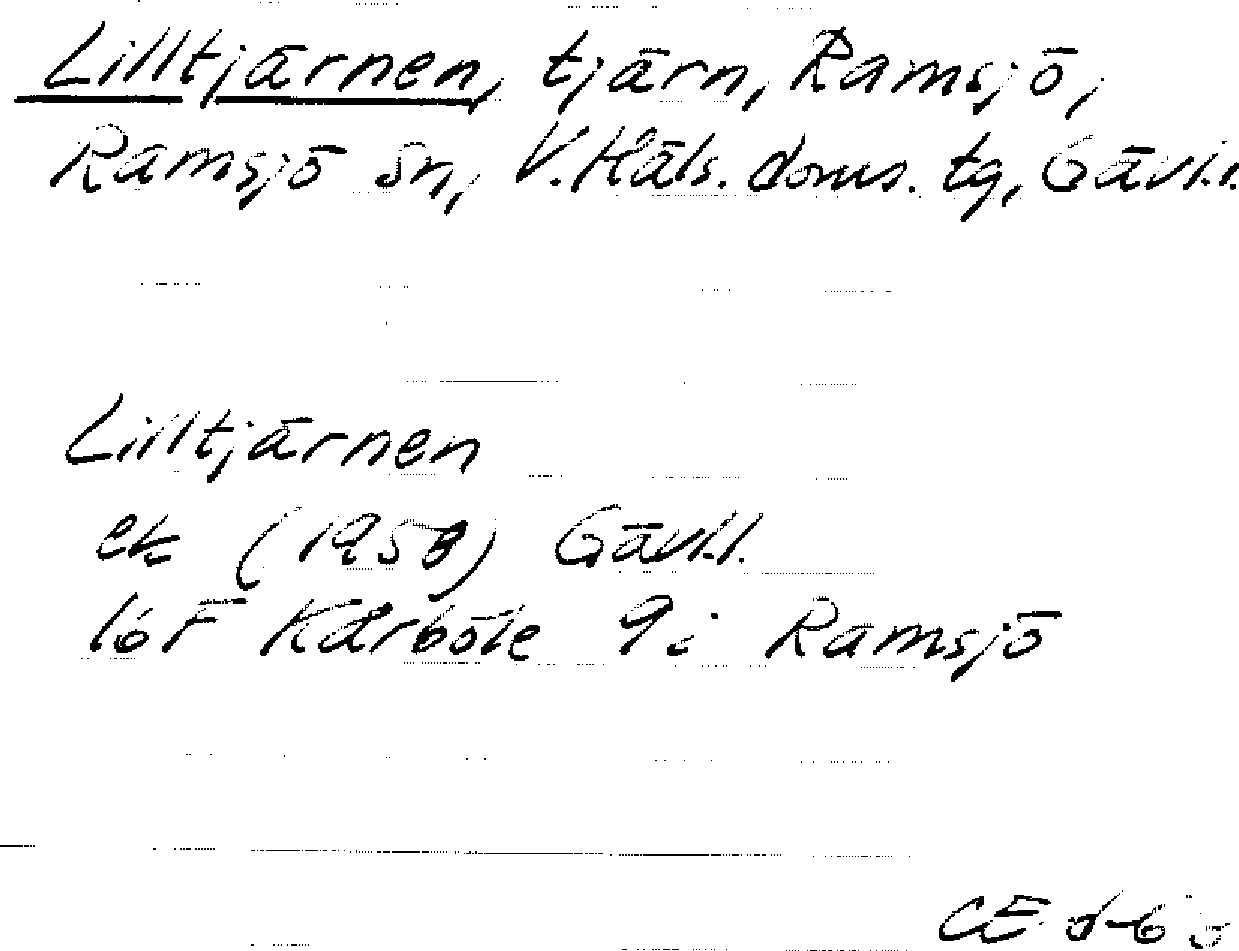 Lilltjärnen, tjärn, Ramsjö,
Ramsjö sn, V. Häls. doms. tg, Gävl.l.
Lilltjärnen
ek (1958) Gävl.l.
16F Kårböle 9i Ramsjö
CE